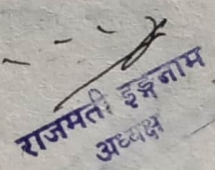 राजमती इङ्गनाम
अध्यक्ष